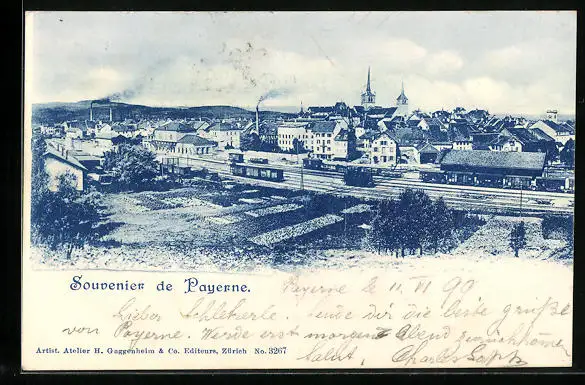 Souvenir de Payerne.
Payerne 11. VI 99
Lieber Sende dir die beste grüße
von Payerne. Werde erst morgen Abend
Salut, Charles
Artist. Atelier H. Guggenheim & Co. Editeurs, Zürich No. 3267